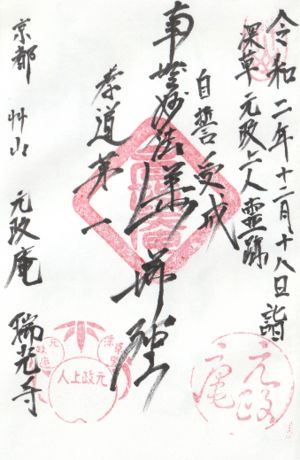 令和二年十二月十八日 詣
深草 元政上人霊跡
自誓受戒
南無妙法蓮華経
孝道第一
京都 艸山 元政庵 瑞光寺
元政庵
元政上人